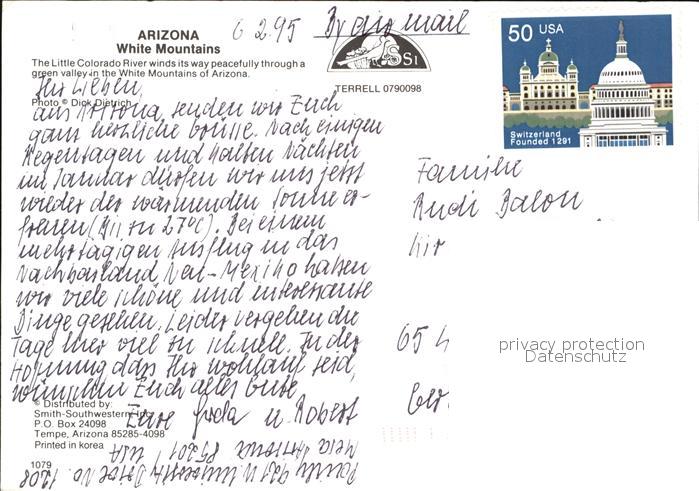 ARIZONA
White Mountains
The Little Colorado River winds its way peacefully through a
green valley in the White Mountains of Arizona.
Photo © Dick Dietrich
6 2.95 By air mail
SS1
TERRELL 0790098
50 USA
Switzerland
Founded 1291
Ihr Lieben,
aus Arizona senden wir Euch
ganz herzliche Grüsse. Nach einigen
Regentagen und kalten Nächten
im Januar dürfen wir uns jetzt
wieder der wärmenden Sonne er-
freuen (bis zu 27°C). Bei einem
mehrtägigen Ausflug in das
Nachbarland Neu-Mexiko hatten
wir viele schöne und interessante
Dinge gesehen. Leider vergehen die
Tage hier viel zu schnell. In der
Hoffnung dass Ihr wohlauf seid,
wünschen Euch alles Gute
Eure u. Robert
Familie
Rudi
65
privacy protection
Datenschutz
© Distributed by:
Smith-Southwestern, Inc.
P.O. Box 24098
Tempe, Arizona 85285-4098
Printed in korea
1079
Mesa Arizona 85201, USA
930 N. Drive No. 1208